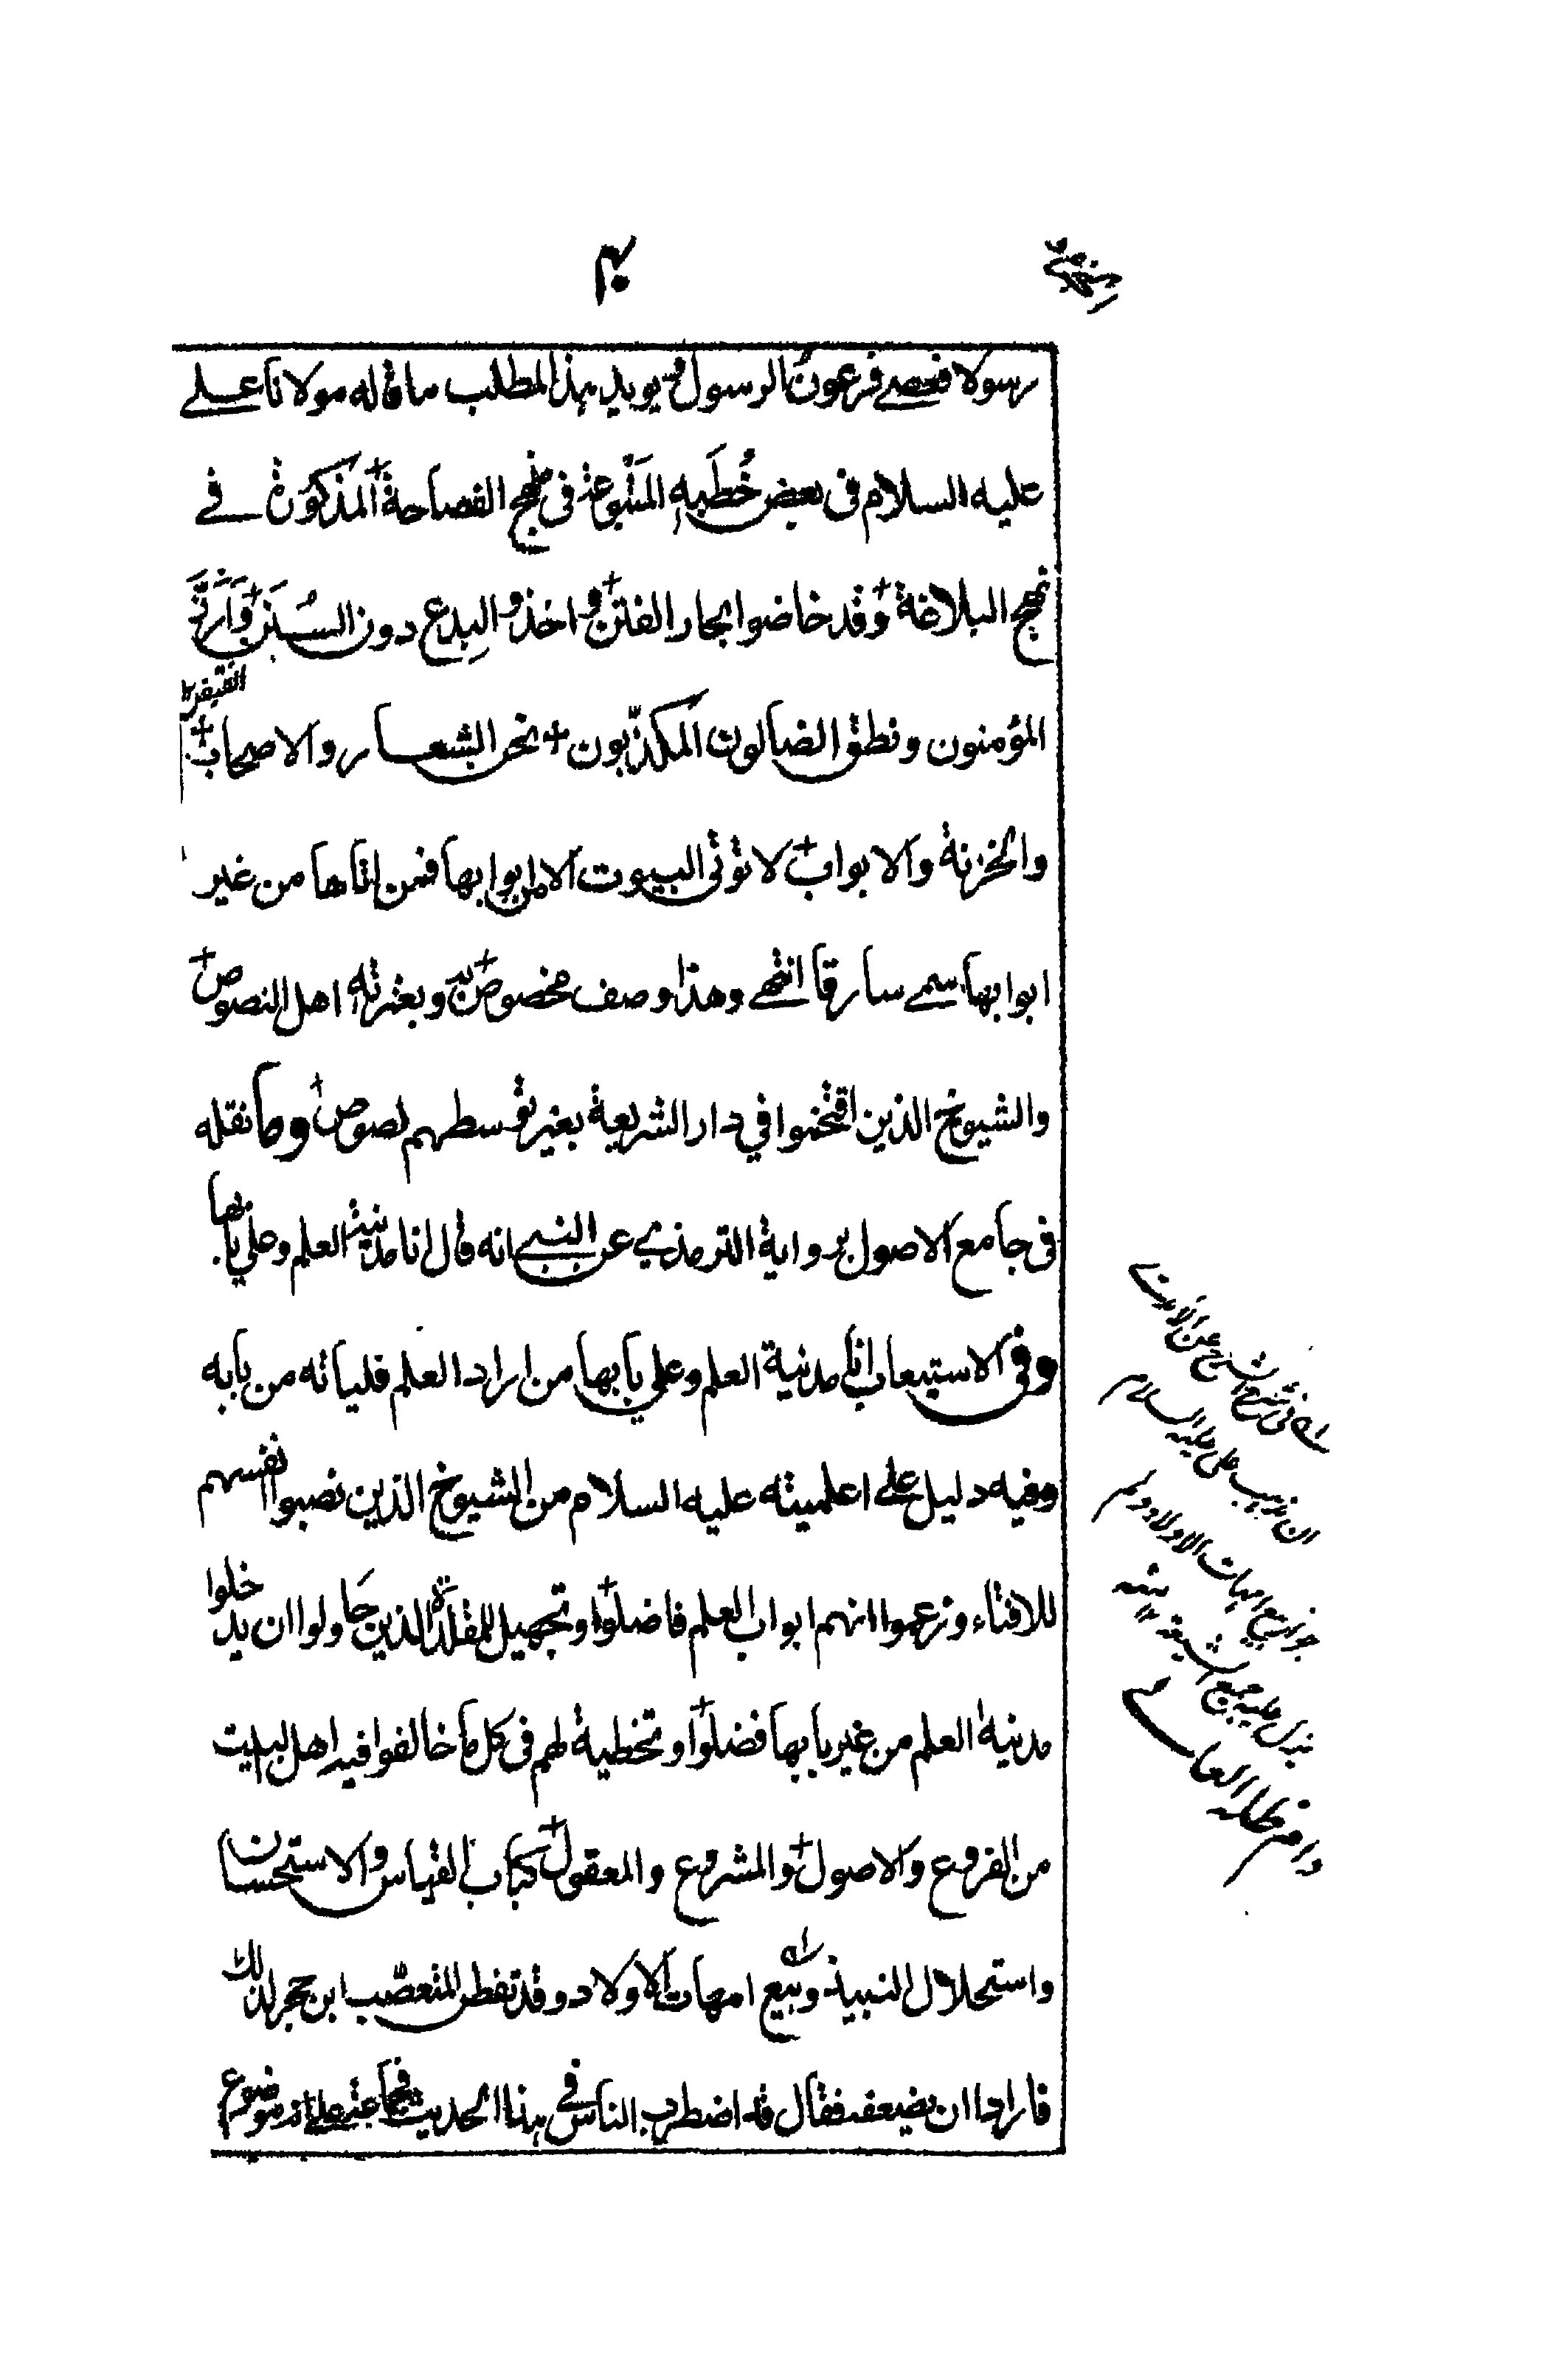 ۴۰
رسولا فعصى فرعون الرسول ويويد هذا المطلب ما قاله مولانا على
عليه السلام فى بعض خُطَبِهِ المَتْبوعة فى نهج الفصاحة المَذكورة فے
نهج البلاغة وقد خاضوا بحار الفتن و اخذوا البِدع دون السُنَن وَاَرَزَ
المؤمنون ونطق الضالون المكذّبون نحن الشعار والاصحاب
والخزنة والابواب لا تؤتى البيوت الا من ابوابها فمن اتاها من غير
ابوابها سمے سارقا انتهے وهذا وصف مخصوص به وبعترته اهل النصوص
والشيوخ الذين اقتحموا في دار الشريعة بغير توسطهم لصوص وما نقله
فى جامع الاصول برواية الترمذي عن النبے انه قال انا مدنية العلم وعلي بابها
وفى الاستيعاب انا مدنية العلم وعلي بابها من اراد العلم فلياته من بابه
وفيه دليل على اعلميته عليه السلام من الشيوخ الذين نصبوا انفسهم
للافتاء وزعموا انهم ابواب العلم فاضلوا وتجهيل للمقلدة الذين حَاولوا ان يدخلوا
مدنية العلم من غير بابها فضلوا وتخطية لهم فى كل ما خالفوا فيه اهل البيت
من الفروع والاصول والمشروع والمعقول كباب القياس والاستحسان
واستحلال النبيذ وبيع امهات الاولاد وقد تفطن المتعصّب ابن حجر لذلك
فاراد ان يضعفه فقال قد اضطرب الناس فى هذا الحديث فجماعة على انه موضوع
ان مذهب على عليه السلام
جواز بيع امهات الاولاد ولم
دام ظله العالے